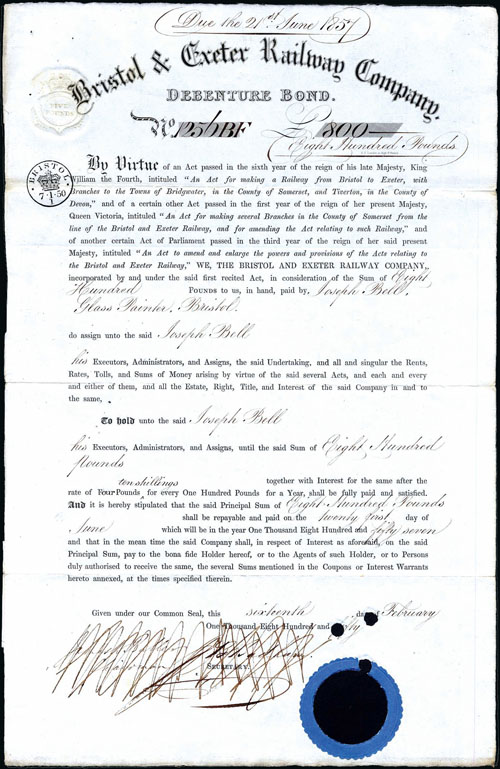 Due the 21st June 1857
Bristol & Exeter Railway Company.
DEBENTURE BOND.
No. 125/6 BF £ 800
Eight Hundred Pounds
FIVE POUNDS
BRISTOL
By Virtue of an Act passed in the sixth year of the reign of his late Majesty, King
William the Fourth, intituled "An Act for making a Railway from Bristol to Exeter, with
Branches to the Towns of Bridgwater, in the County of Somerset, and Tiverton, in the County of
Devon," and of a certain other Act passed in the first year of the reign of her present Majesty,
Queen Victoria, intituled "An Act for making several Branches in the County of Somerset from the
line of the Bristol and Exeter Railway, and for amending the Act relating to such Railway," and
of another certain Act of Parliament passed in the third year of the reign of her said present
Majesty, intituled "An Act to amend and enlarge the powers and provisions of the Acts relating to
the Bristol and Exeter Railway," WE, THE BRISTOL AND EXETER RAILWAY COMPANY,
incorporated by and under the said first recited Act, in consideration of the Sum of Eight
Hundred POUNDS to us, in hand, paid by Joseph Bell,
Glass Painter, Bristol.
do assign unto the said Joseph Bell
his Executors, Administrators, and Assigns, the said Undertaking, and all and singular the Rents,
Rates, Tolls, and Sums of Money arising by virtue of the said several Acts, and each and every
and either of them, and all the Estate, Right, Title, and Interest of the said Company in and to
the same,
To hold unto the said Joseph Bell
his Executors, Administrators, and Assigns, until the said Sum of Eight Hundred
Pounds
together with Interest for the same after the
ten shillings
rate of FOUR POUNDS for every One Hundred Pounds for a Year, shall be fully paid and satisfied.
And it is hereby stipulated that the said Principal Sum of Eight Hundred Pounds
shall be repayable and paid on the twenty first day of
June which will be in the year One Thousand Eight Hundred and fifty seven
and that in the mean time the said Company shall, in respect of Interest as aforesaid, on the said
Principal Sum, pay to the bona fide Holder hereof, or to the Agents of such Holder, or to Persons
duly authorised to receive the same, the several Sums mentioned in the Coupons or Interest Warrants
hereto annexed, at the times specified therein.
Given under our Common Seal, this sixteenth day of February
One Thousand Eight Hundred and fifty
SECRETARY.